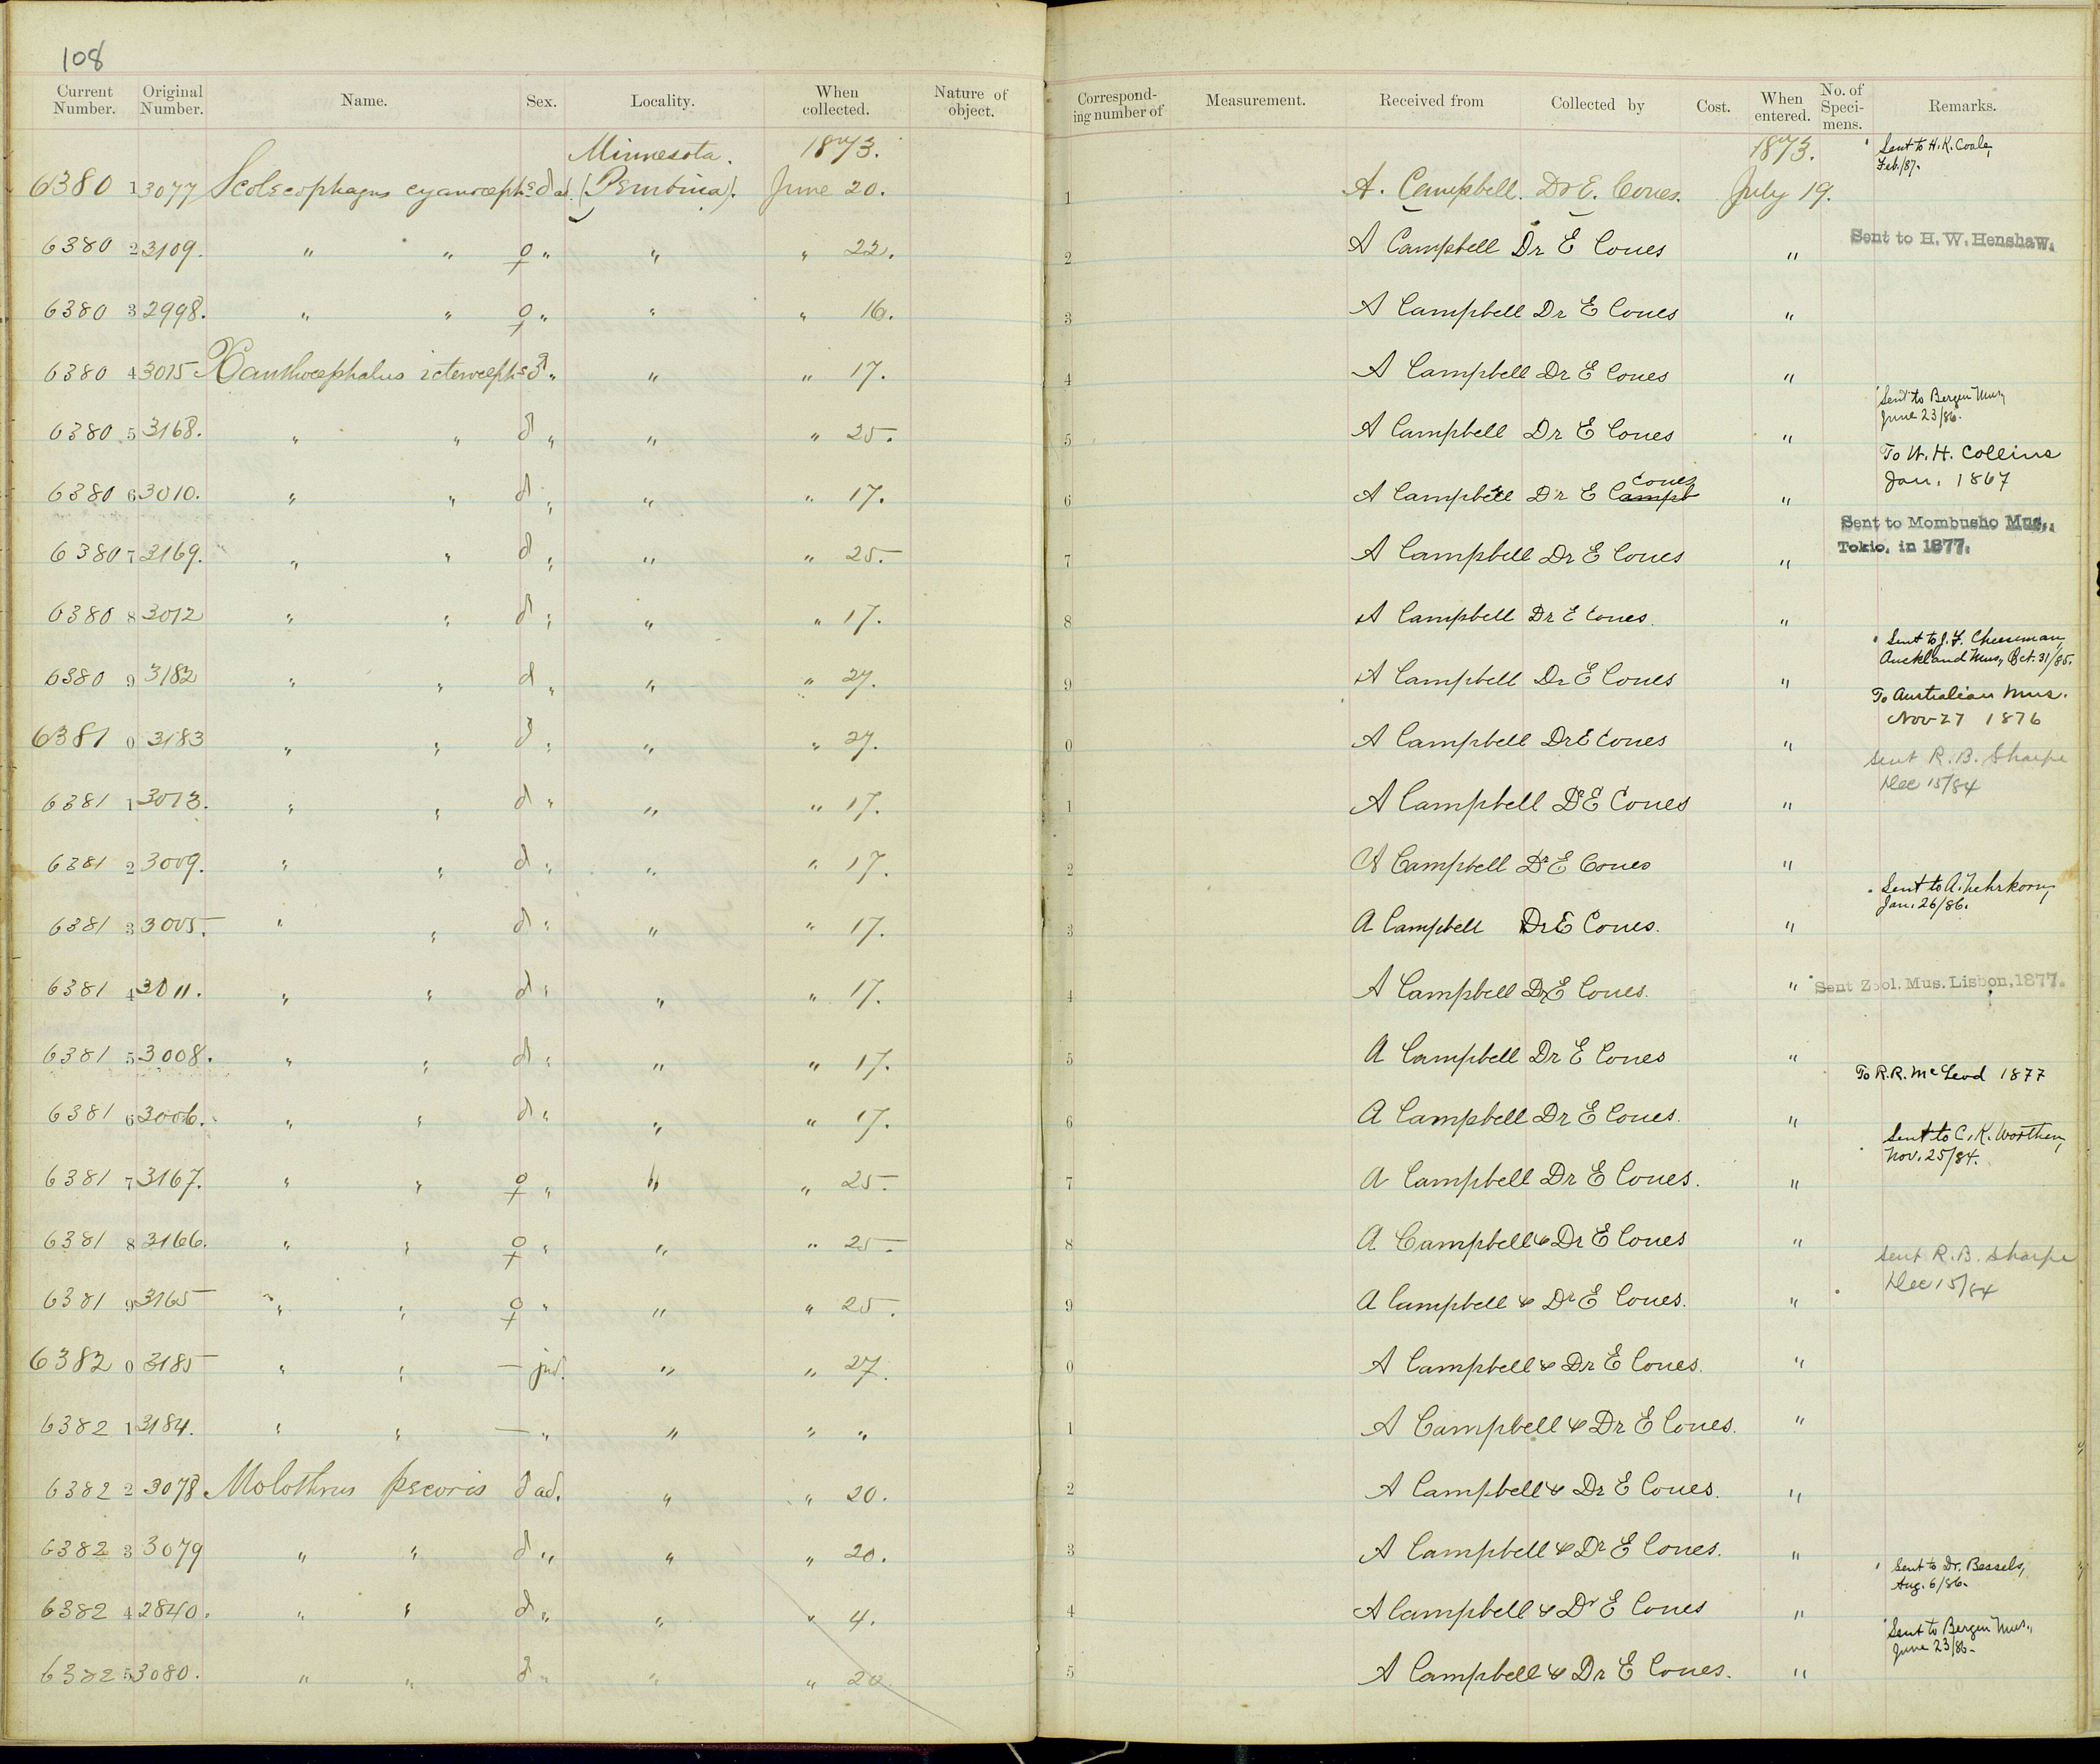 108
Current Number. Original Number. Name. Sex. Locality. When collected. Nature of object. Corresponding number of Measurement. Received from Collected by Cost. When entered. No. of Specimens. Remarks.
Minnesota. 1873. 1873. Sent to H. K. Coale, Feb./87.
6380 1 3077 Scolecophagus cyanoceph-s ♂ ad. (Pembina). June 20. 1 A. Campbell. Dr E. Coues. July 19.
6380 2 3109. " " ♀ " " " 22. 2 A Campbell Dr E Coues " Sent to H. W. Henshaw.
6380 3 2998. " " ♀ " " " 16. 3 A Campbell Dr E Coues "
6380 4 3015 Xanthocephalus icteroceph-s ♂ " " " 17. 4 A Campbell Dr E Coues "
6380 5 3168. " " ♂ " " " 25. 5 A Campbell Dr E Coues " Sent to Bergen Mus, June 23/86.
6380 6 3010. " " ♂ " " " 17. 6 A Campbell Dr E Campb Coues " To W. H. Collins Jan. 1867
6380 7 3169. " " ♂ " " " 25. 7 A Campbell Dr E Coues " Sent to Mombusho Mus., Tokio, in 1877.
6380 8 3012 " " ♂ " " " 17. 8 A Campbell Dr E Coues. "
6380 9 3182 " " ♂ " " " 27. 9 A Campbell Dr E Coues " Sent to J. F. Cheeseman, Auckland Mus., Oct. 31/85.
6381 0 3183 " " ♂ " " " 27. 0 A Campbell Dr E Coues " To Australian Mus. Nov 27 1876
6381 1 3013. " " ♂ " " " 17. 1 A Campbell Dr E Coues " Sent R. B. Sharpe Dec 15/84
6381 2 3009. " " ♂ " " " 17. 2 A Campbell Dr E Coues "
6381 3 3005. " " ♂ " " " 17. 3 A Campbell Dr E Coues. " Sent to A. Nehrkorn, Jan. 26/86.
6381 4 3011. " " ♂ " " " 17. 4 A Campbell Dr E Coues. " Sent Zool. Mus. Lisbon, 1877.
6381 5 3008. " " ♂ " " " 17. 5 A Campbell Dr E Coues "
6381 6 3006. " " ♂ " " " 17. 6 A Campbell Dr E Coues. " To R. R. McLeod 1877
6381 7 3167. " " ♀ " " " 25. 7 A Campbell Dr E Coues. " Sent to C. K. Worthen, Nov. 25/84.
6381 8 3166. " " ♀ " " " 25. 8 A Campbell & Dr E Coues "
6381 9 3165 " " ♀ " " " 25. 9 A Campbell & Dr E Coues. " Sent R. B. Sharpe Dec 15/84
6382 0 3185 " " — juv. " " 27. 0 A Campbell & Dr E Coues. "
6382 1 3184. " " — " " " " 1 A Campbell & Dr E Coues. "
6382 2 3078 Molothrus pecoris ♂ ad. " " 20. 2 A Campbell & Dr E Coues. "
6382 3 3079 " " ♂ " " " 20. 3 A Campbell & Dr E Coues. "
6382 4 2840. " " ♂ " " " 4. 4 A Campbell & Dr E Coues " Sent to Dr. Bessels, Aug. 6/86.
6382 5 3080. " " ♂ " " " 20 5 A Campbell & Dr E Coues. " Sent to Bergen Mus., June 23/86.